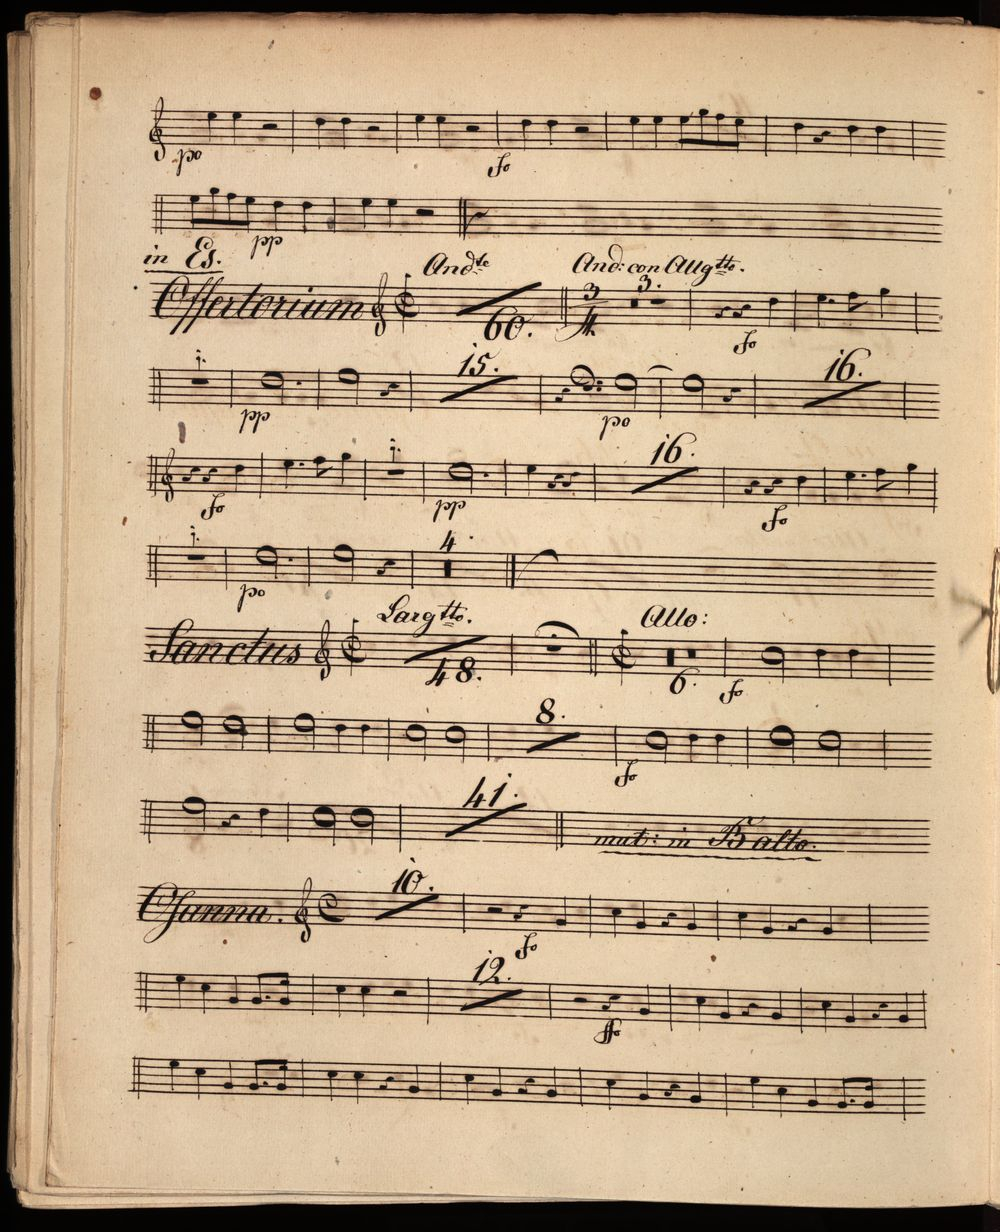 po fo
pp
in Es.
Andte And: con Allgtto.
Offertorium 60. 3/4 3. fo
1. 15. 16.
pp po
1. 16.
fo pp fo
1. 4.
po
Largtto. Allo:
Sanctus 48. 6. fo
8.
fo
41.
mut: in B alto.
Osanna. 10.
fo
12.
ffo